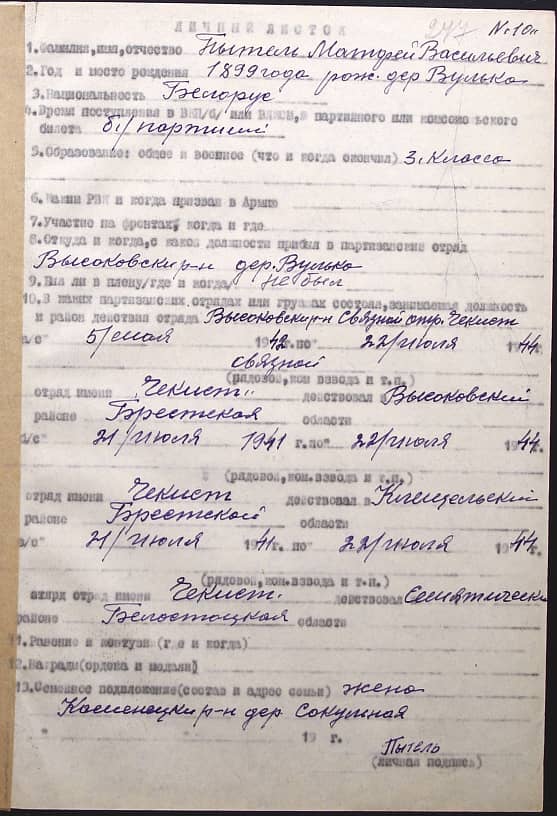 247 № 10
ЛИЧНЫЙ ЛИСТОК
1.Фамилия,имя,отчество Пытель Матфей Васильевич
2.Год и место рождения 1899 года рож. дер Вулько
3.Национальность Белорус
4.Время поступления в ВКП/б/ или ВЛКСМ, № партийного или комсомольского
билета б/партийный
5.Образование: общее и военное (что и когда окончил) 3 класса
6.Каким РВК и когда призван в Армию
7.Участие на фронтах, когда и где
8.Откуда и когда,с какой должности прибыл в партизанский отряд
Высоковский р-н дер. Вулько
9.Был ли в плену/где и когда/ не был
10.В каких партизанских отрядах или группах состоял,занимаемая должность
и район действия отряда Высоковский р-н Связной отр. Чекист
а/с" 5/мая 1942 г. по" 22/июля 1944 г.
связной
(рядовой,ком взвода и т.п.)
отряд имени Чекист" действовал Высоковский
районе Брестская области
а/с" 21/июля 1941 г. по" 22/июля 1944 г.
(рядовой,ком.взвода и т.п.)
отряд имени Чекист действовал Клещельский
районе Брестской области
а/с" 21/июля 1941 г. по 22/июля 1944 г.
(рядовой,ком.взвода и т.п.)
отряд имени Чекист. действовал Семятически
районе Белостоцкая области
11.Ранение и контузия (где и когда)
12.Награды(ордена и медали)
13.Семейное положение(состав и адрес семьи) жена
Каменецкий р-н дер Сокумная
" 19 г.
Пытель
(личная подпись)